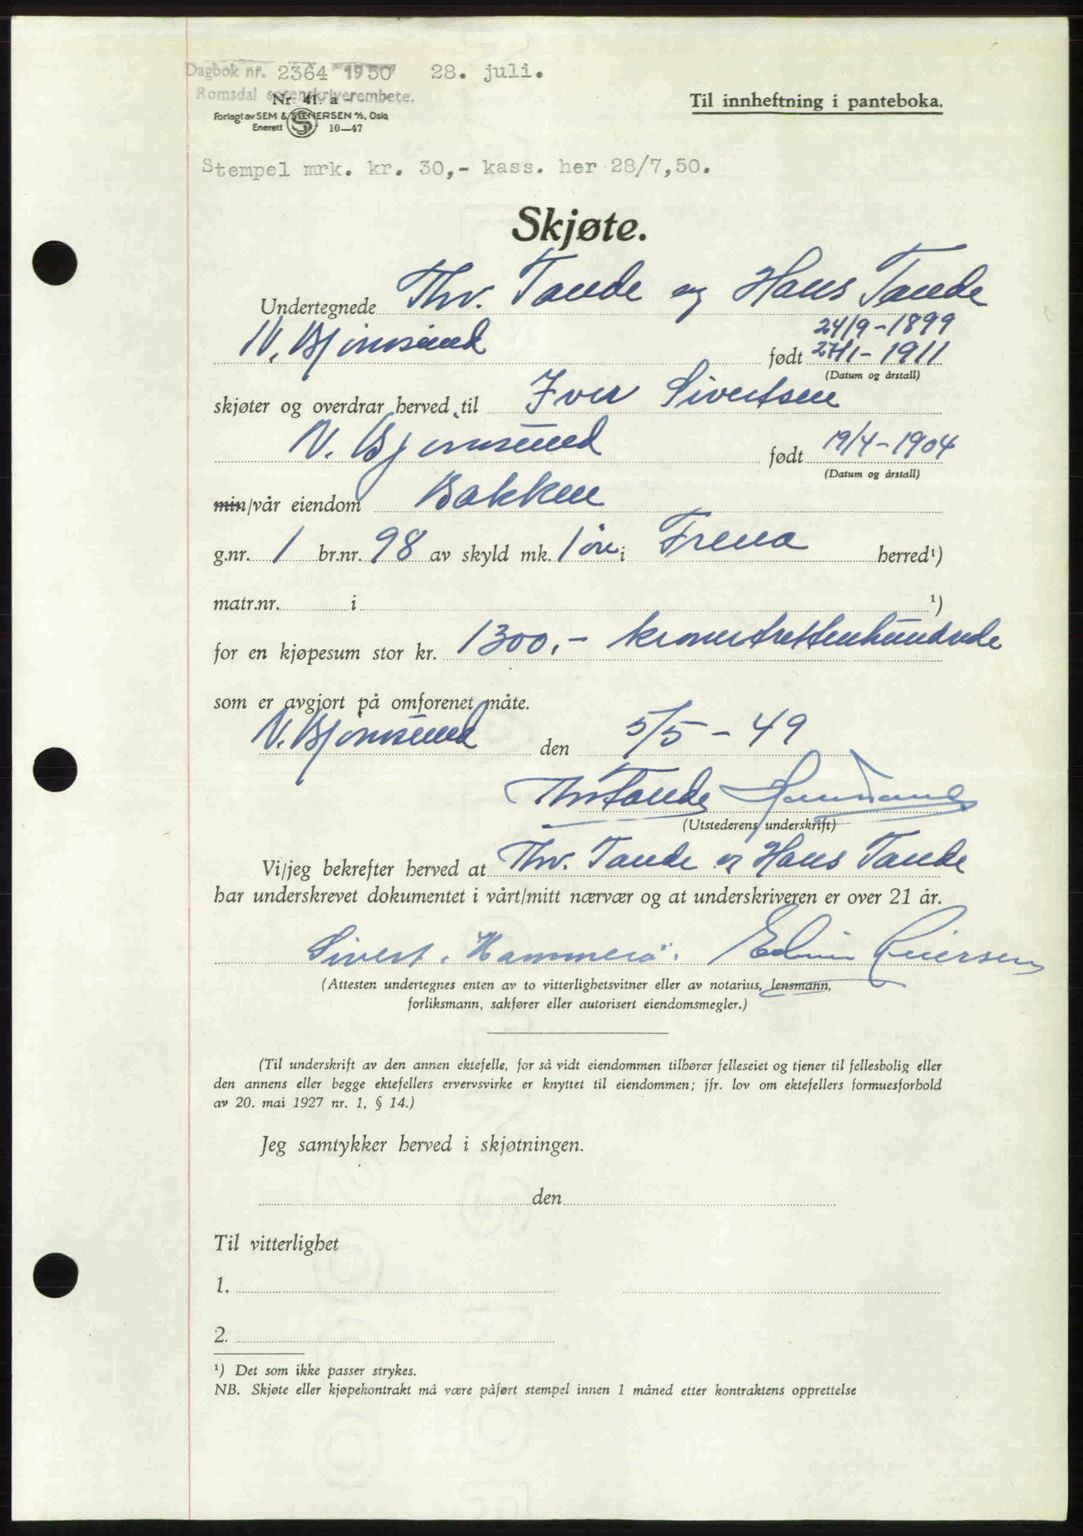 Dagbok nr. 2364 1950 28. juli.
Romsdal sorenskriverembete.
Nr. 41. a
Forlagt av SEM & STENERSEN A/S, Oslo
Enerett 10—47
Til innheftning i panteboka.
Stempel mrk. kr. 30,- kass. her 28/7,50.
Skjøte.
Undertegnede Thv. Tande og Hans Tande
24/9-1899
N. Bjørnsund født 27/1-1911
(Datum og årstall)
skjøter og overdrar herved til Iver Sivertsen
N. Bjørnsund født 19/4-1904
(Datum og årstall)
min/vår eiendom Bakken
g.nr. 1 br.nr. 98 av skyld mk. 1 øre i Frena herred¹)
matr.nr. i ¹)
for en kjøpesum stor kr. 1300,- kronertrettenhundrede
som er avgjort på omforenet måte.
N. Bjørnsund den 5/5-49
Thv Tande Hans Tande
(Utstederens underskrift)
Vi/jeg bekrefter herved at Thv. Tande og Hans Tande
har underskrevet dokumentet i vårt/mitt nærvær og at underskriveren er over 21 år.
Sivert. Hammerö. Edvin Reiersen
(Attesten undertegnes enten av to vitterlighetsvitner eller av notarius, lensmann,
forliksmann, sakfører eller autorisert eiendomsmegler.)
(Til underskrift av den annen ektefelle, for så vidt eiendommen tilhører felleseiet og tjener til fellesbolig eller
den annens eller begge ektefellers ervervsvirke er knyttet til eiendommen; jfr. lov om ektefellers formuesforhold
av 20. mai 1927 nr. 1, § 14.)
Jeg samtykker herved i skjøtningen.
den
Til vitterlighet
1.
2.
¹) Det som ikke passer strykes.
NB. Skjøte eller kjøpekontrakt må være påført stempel innen 1 måned etter kontraktens opprettelse